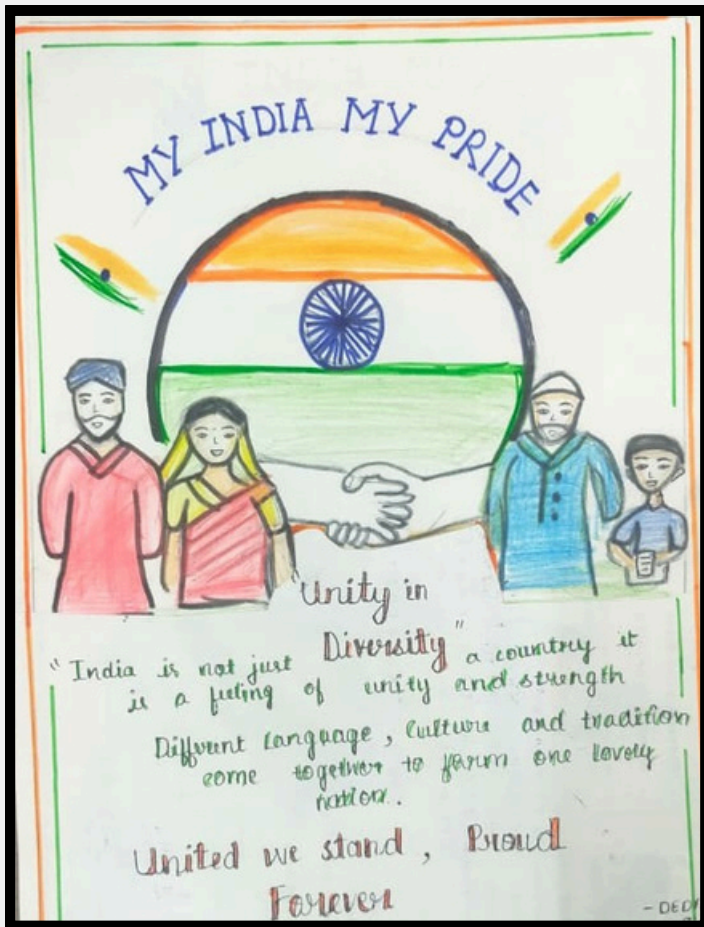 MY INDIA MY PRIDE
"Unity in
Diversity"
"India is not just a country it
is a feeling of unity and strength
Different Language, Culture and tradition
come together to form one lovely
nation.
United we stand, Proud
Forever